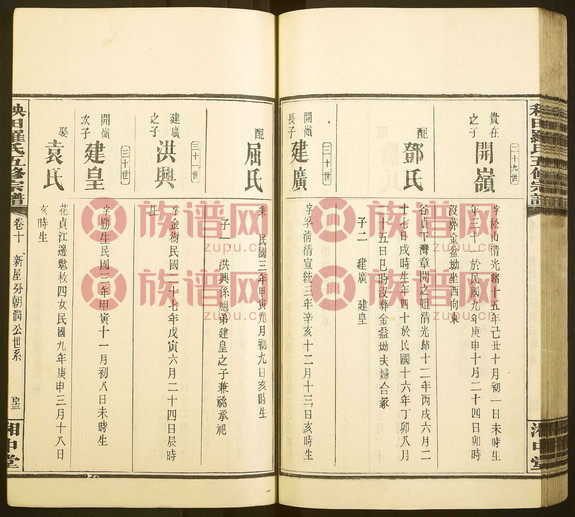 二十九世
貴在
之子
開嶺
字松山清光緒十五年己丑十月初一日未時生
年三十一於民國九年庚申十月二十四日卯時
沒葬金盆坳坐西向東
配
鄧氏
谷貞下灣章開之姐清光緒十二年丙戌六月二
十七日戌時生年四十於民國十六年丁卯八月
十五日巳時沒葬金盆坳夫婦合冢
子二 建廣 建皇
三十世
開嶺
長子
建廣
字 清宣統三年辛亥十二月十三日亥時生
配
屈氏
民國三年甲寅九月初九日亥時生
子一 洪興係 弟建皇之子兼祧承祀
三十一世
建廣
之子
洪興
字金樹民國二十七年戊寅六月二十四日辰時
生
三十世
開嶺
次子
建皇
字 民國三年甲寅十一月初八日未時生
娶
袁氏
花貞江邊 枚四女民國九年庚申三月十八日
亥時生
秧田羅氏五修宗譜
卷十 新屋 朝 公世系
湘中堂
秧田羅氏五修宗譜
湘中堂
族谱网
zupu.cn